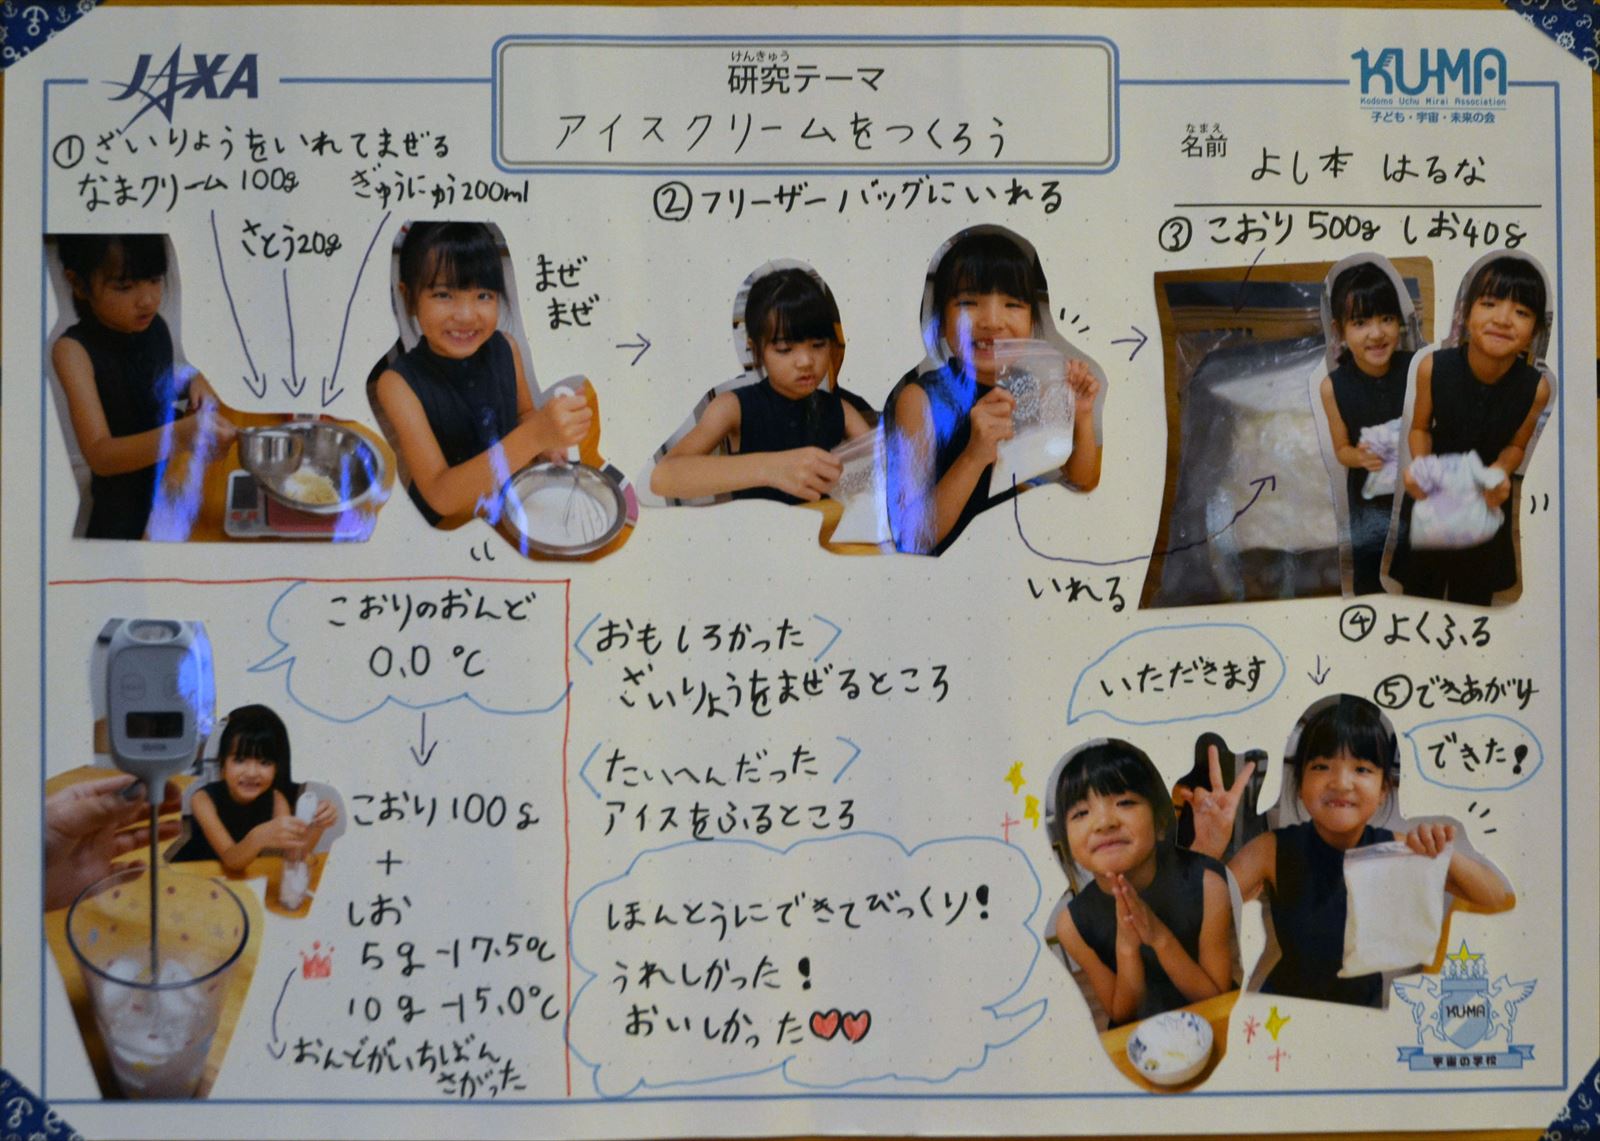 JAXA
けんきゅう
研究テーマ
アイスクリームをつくろう
KU-MA
Kodomo Uchu Mirai Association
子ども・宇宙・未来の会
なまえ
名前
よし本 はるな
①ざいりょうをいれてまぜる
なまクリーム100g
ぎゅうにゅう200ml
さとう20g
まぜ
まぜ
②フリーザーバッグにいれる
③こおり500g しお40g
いれる
④よくふる
⑤できあがり
できた!
いただきます
こおりのおんど
0.0℃
こおり100g
+
しお
5g -17.5℃
10g -15.0℃
おんどがいちばん
さがった
〈おもしろかった〉
ざいりょうをまぜるところ
〈たいへんだった〉
アイスをふるところ
ほんとうにできてびっくり!
うれしかった!
おいしかった♥♥
KUMA
宇宙の学校